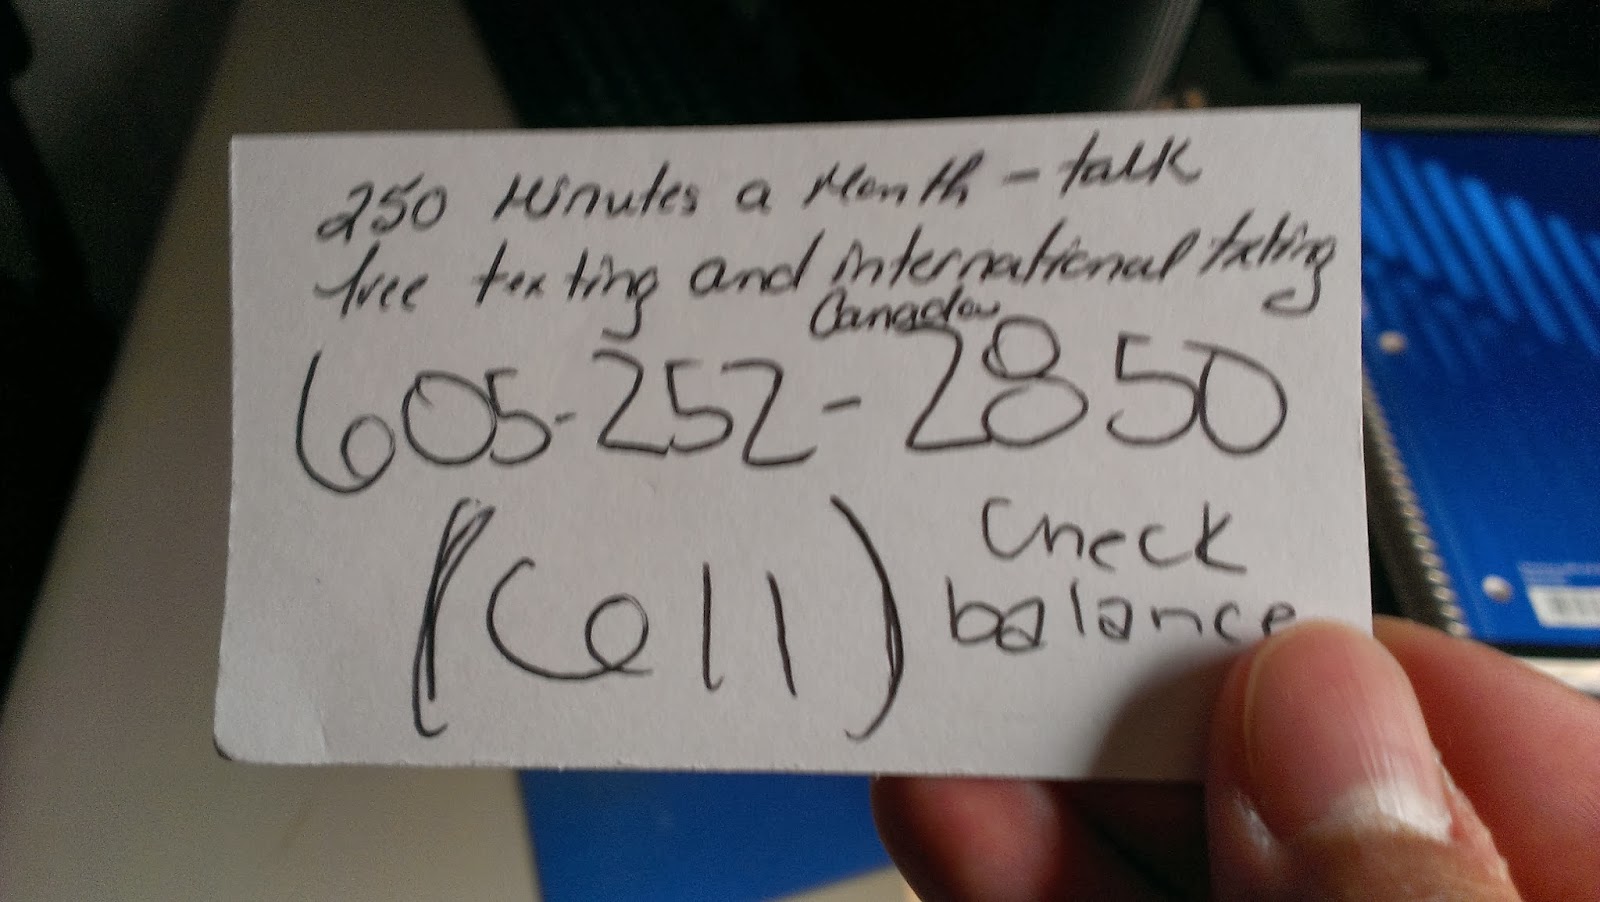 250 Minutes a Month - talk
free texting and international texting
Canada
605-252-2850
(Cell)
Check
balance